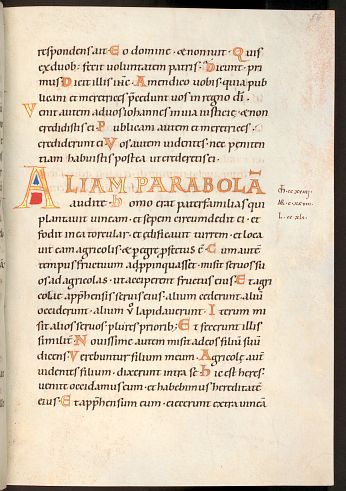 respondens ait · Eo domine · & non iuit · Quis
ex duob: fecit voluntatem patris · Dicunt · pri
mus · Dicit illis ih̅c · Amen dico vobis · quia pub
licani et meretrices p̅cedunt vos in regno di̅ ·
Venit autem ad vos iohannes in via iusticie · & non
credidistis ei · Publicani autem et meretrices ·
crediderunt ei · Vos autem videntes · nec peniten
tiam habuistis postea ut crederetis ei ·
ALIAM PARABOLĀ
audite · Homo erat paterfamilias qui
plantauit vineam · et sepem circumdedit ei · et
fodit in ea torcular · et edificauit turrem · et loca
uit eam agricolis · & p̲egre p̲fectus e̅ · Cum aute̅
tempus fructuum adp̲pinquasset · misit seruos su
os ad agricolas · ut acciperent fructus eius · Et agri
colae app̲hensis seruis eius · alium ceciderunt · aliu̅
occiderunt · alium v̊ lapidauerunt · Iterum mi
sit alios seruos plures priorib: · Et fecerunt illis
similit̅ · Nouissime autem misit ad eos filiu̅ suu̅
dicens · Verebuntur filium meum · Agricolę aut̅
videntes filium · dixerunt intra se · Hic est heres ·
venite occidamus eum · et habebimus hereditate̅
eius · Et app̲hensum eum · eiecerunt extra vinea̅